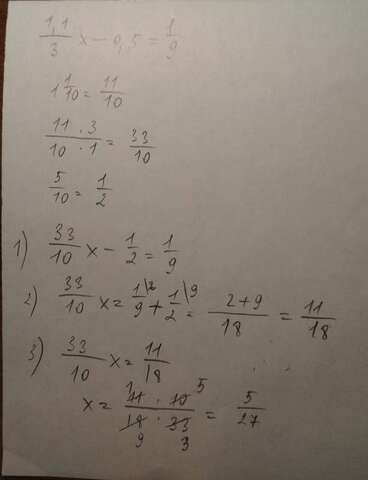 1,1/3 x - 0,5 = 1/9
1 1/10 = 11/10
11 · 3/10 · 1 = 33/10
5/10 = 1/2
1) 33/10 x - 1/2 = 1/9
2) 33/10 x = 1/9 \2 + 1/2 \9 = 2+9/18 = 11/18
3) 33/10 x = 11/18
x = 11 · 10/18 · 33 = 5/27
1 5
9 3